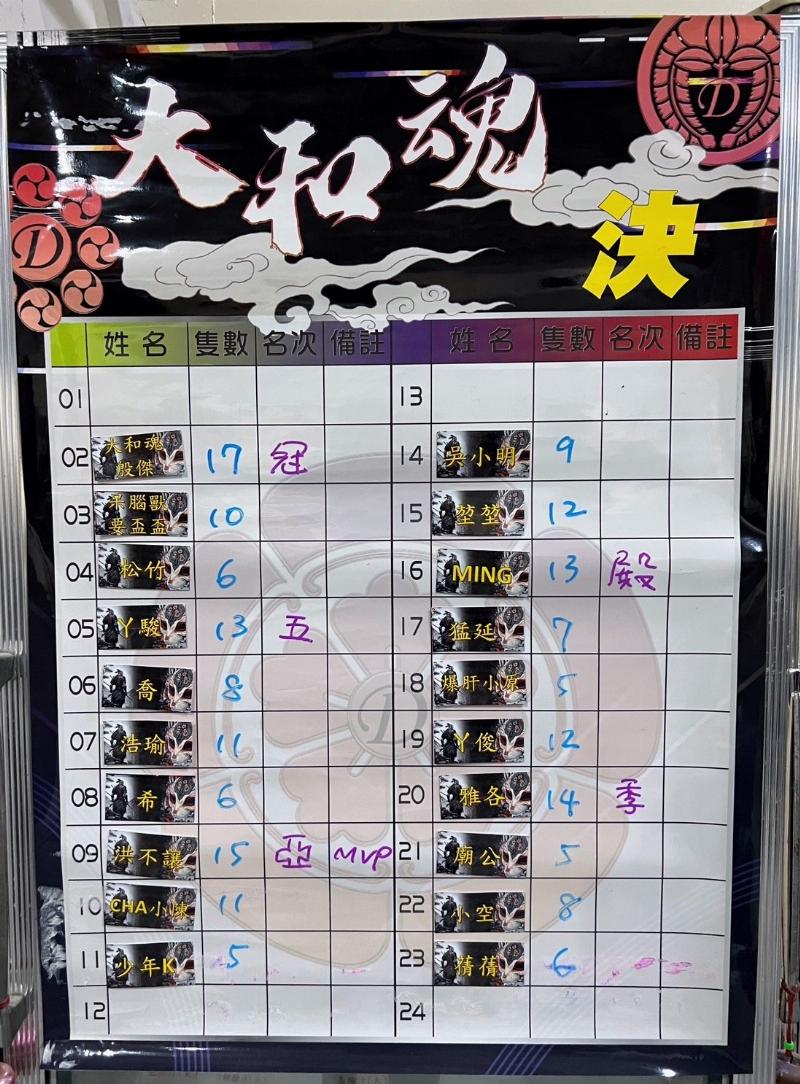 大和魂
D
D
決
姓名 隻數 名次 備註 姓名 隻數 名次 備註
01 13
02 大和魂 殷傑 17 冠 14 吳小明 9
03 釆腦獸 要盃盃 10 15 堃堃 12
04 松竹 6 16 MING 13 殿
05 丫駿 13 五 17 猛延 7
06 喬 8 18 爆肝小原 5
07 浩瑜 11 19 丫俊 12
08 希 6 20 雅各 14 季
09 洪不讓 15 亞 MVP 21 廟公 5
10 CHA小陳 11 22 小空 8
11 少年K 5 23 蒨蒨 6
12 24